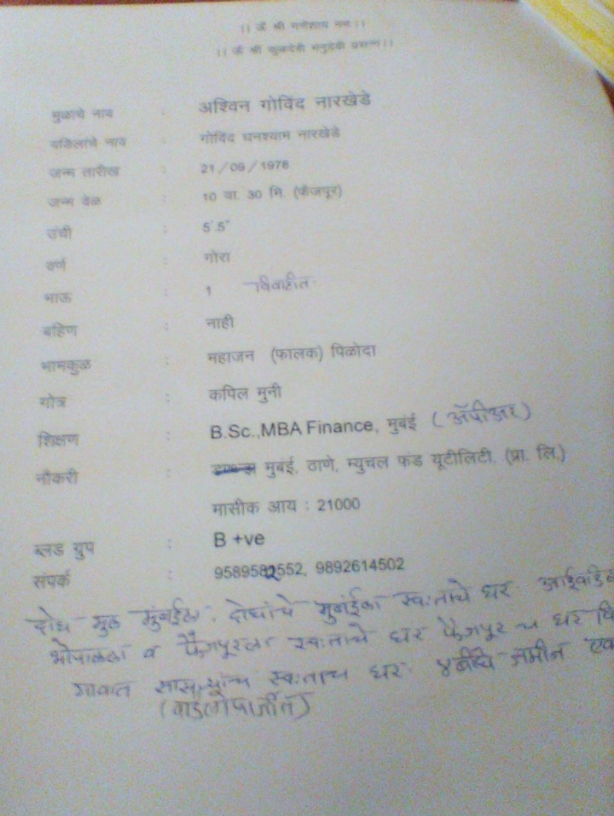 ।। ॐ श्री गणेशाय नमः।।
।। ॐ श्री कुलदेवी मनुदेवी प्रसन्न।।
मुळाचे नाव : अश्विन गोविंद नारखेडे
वडिलांचे नाव : गोविंद घनश्याम नारखेडे
जन्म तारीख : 21/09/1978
जन्म वेळ : 10 वा. 30 मि. (फैजपूर)
उंची : 5'.5"
वर्ण : गोरा
भाऊ : 1 विवाहीत
बहिण : नाही
मामकुळ : महाजन (फालक) पिळोदा
गोत्र : कपिल मुनी
शिक्षण : B.Sc.,MBA Finance, मुबंई (अ‍ॅपीअर)
नौकरी : मुबंई, ठाणे, म्युचल फंड यूटीलिटी. (प्रा. लि.)
मासीक आय : 21000
ब्लड ग्रुप : B +ve
संपर्क : 9589582552, 9892614502
दोघ मुल मुंबईला. दोघांचे मुंबईला स्वःताचे घर.
भोपाळला व फैजपूरला स्वःताचे घर फैजपूर च घर
गावात स्वःताच घर. ४ बीघे जमीन
(वाडलोपार्जीत)